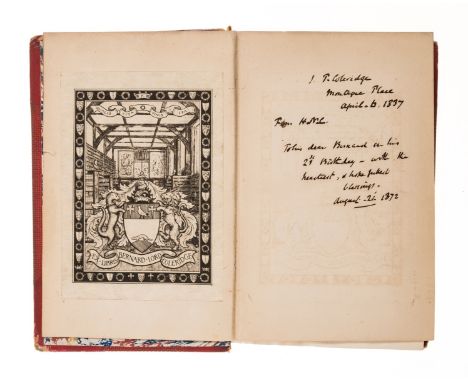 EX LIBRIS BERNARD LORD COLERIDGE
J T. Coleridge
Montague Place
April 6. 1837
From
To his dear Bernard on his
21st Birthday - with the
heartiest, & hope
blessings.
August 1872